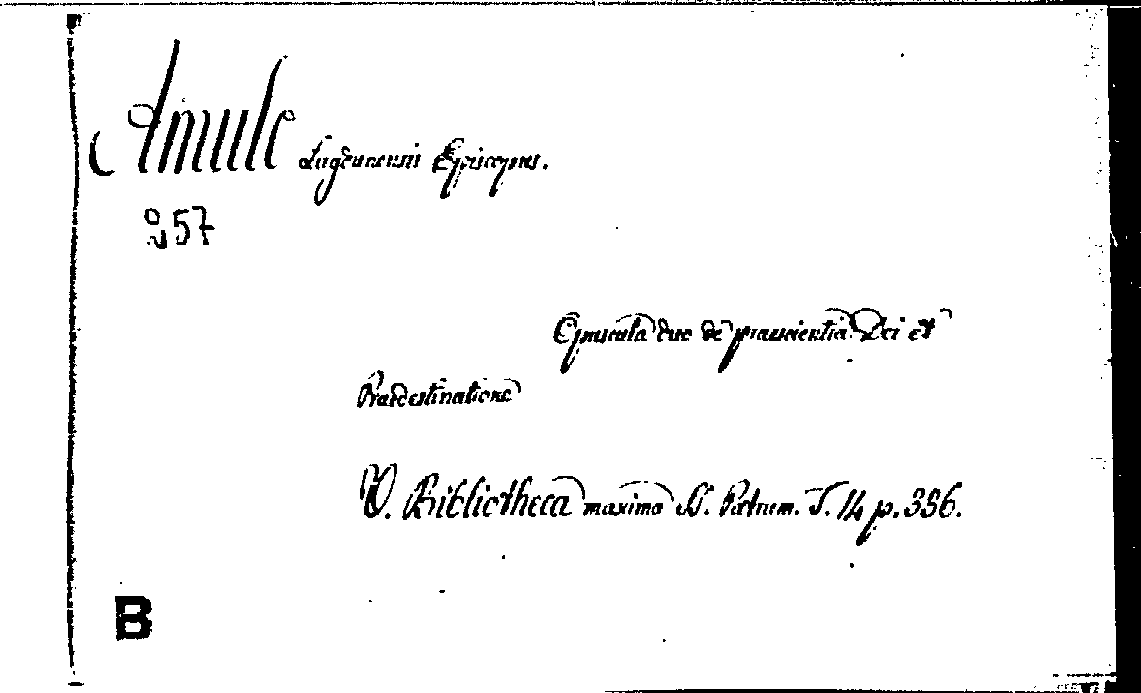 Amulo Lugdunensis Episcopus.
957
Opuscula duo de praescientia Dei et
Praedestinatione
V. Bibliotheca maxima SS. Patrum. T. 14 p. 336.
B